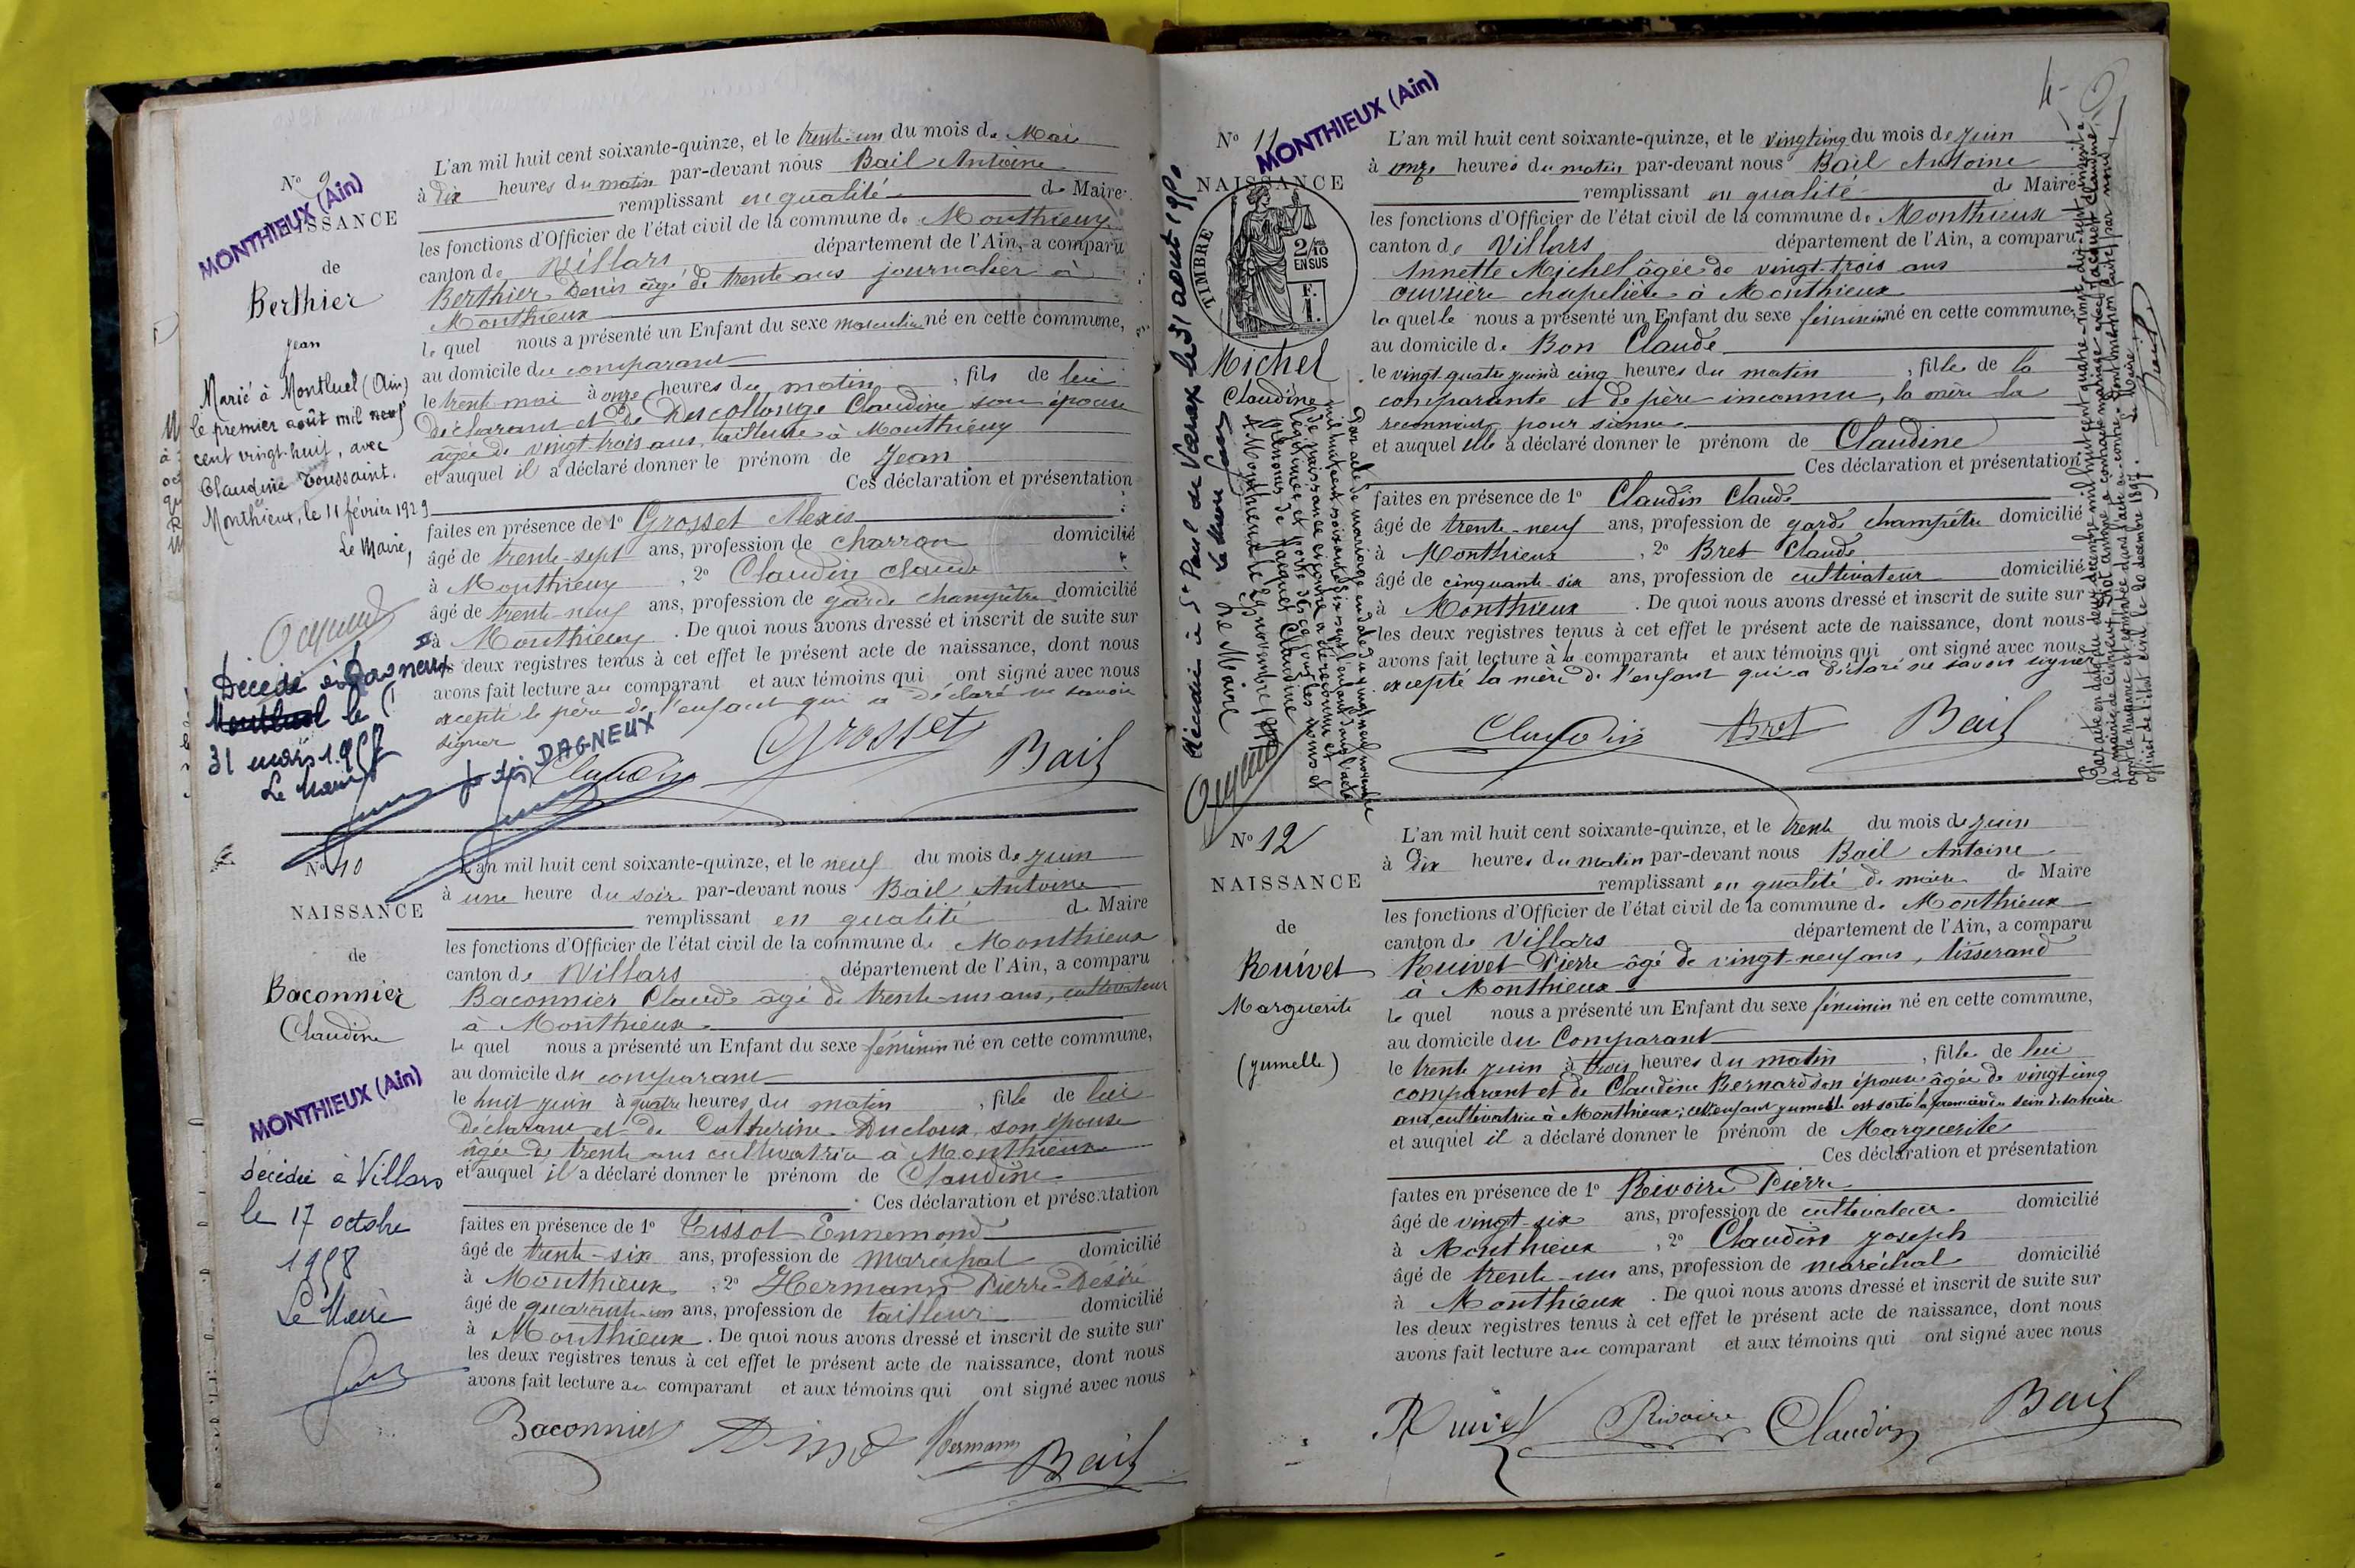 No 9
MONTHIEUX (Ain)
NAISSANCE
de
Berthier
Jean
Marié à Montluel (Ain)
le premier août mil neuf
cent vingt-huit, avec
Claudine Toussaint.
Monthieux, le 11 février 1929
Le Maire,
Décédé à Dagneux
Montluel le
31 mars 1958
Le Maire
L'an mil huit cent soixante-quinze, et le trente-un du mois de Mai
à dix heures du matin par-devant nous Bail Antoine
remplissant en qualité de Maire
les fonctions d'Officier de l'état civil de la commune de Monthieux
canton de Villars département de l'Ain, a comparu
Berthier Denis âgé de trente ans journalier à
Monthieux
le quel nous a présenté un Enfant du sexe masculin né en cette commune,
au domicile du comparant
le trente mai à onze heures du matin, fils de lui
déclarant et de Descollonge Claudine son épouse
âgée de vingt-trois ans, tailleuse à Monthieux
et auquel il a déclaré donner le prénom de Jean
Ces déclaration et présentation
faites en présence de 1o Grosset Alexis
âgé de trente-sept ans, profession de charron domicilié
à Monthieux, 2o Claudin Claude
âgé de trente-neuf ans, profession de garde champêtre domicilié
à Monthieux. De quoi nous avons dressé et inscrit de suite sur
les deux registres tenus à cet effet le présent acte de naissance, dont nous
avons fait lecture au comparant et aux témoins qui ont signé avec nous
excepté le père de l'enfant qui a déclaré ne savoir
signer
DAGNEUX
Claudin Grosset Bail
No 10
NAISSANCE
de
Baconnier
Claudine
MONTHIEUX (Ain)
Décédée à Villars
le 17 octobre
1958
Le Maire
L'an mil huit cent soixante-quinze, et le neuf du mois de juin
à une heure du soir par-devant nous Bail Antoine
remplissant en qualité de Maire
les fonctions d'Officier de l'état civil de la commune de Monthieux
canton de Villars département de l'Ain, a comparu
Baconnier Claude âgé de trente-un ans, cultivateur
à Monthieux
le quel nous a présenté un Enfant du sexe féminin né en cette commune,
au domicile du comparant
le huit juin à quatre heures du matin, fille de lui
déclarant et de Catherine Ducloux son épouse
âgée de trente ans cultivatrice à Monthieux
et auquel il a déclaré donner le prénom de Claudine
Ces déclaration et présentation
faites en présence de 1o Tissot Ennemond
âgé de trente-six ans, profession de maréchal domicilié
à Monthieux, 2o Hermann Pierre-Désiré
âgé de quarante-un ans, profession de tailleur domicilié
à Monthieux. De quoi nous avons dressé et inscrit de suite sur
les deux registres tenus à cet effet le présent acte de naissance, dont nous
avons fait lecture au comparant et aux témoins qui ont signé avec nous
Baconnier Hermann Bail
4
No 11
MONTHIEUX (Ain)
NAISSANCE
TIMBRE
2/10 EN SUS
F. 1.
Michel
Claudine
Décédée à St Paul de Varax le 31 août 1950
Le Maire
Par acte de mariage en date du vingt neuf novembre
mil huit cent soixante dix sept l'enfant dont l'acte
de naissance ci contre a été reconnu et
légitimée et porte dès ce jour les noms et
prénoms de Jacquet Claudine
Le Maire
L'an mil huit cent soixante-quinze, et le vingt cinq du mois de juin
à onze heures du matin par-devant nous Bail Antoine
remplissant en qualité de Maire
les fonctions d'Officier de l'état civil de la commune de Monthieux
canton de Villars département de l'Ain, a comparu
Annette Michel âgée de vingt-trois ans
ouvrière chapelière à Monthieux
la quelle nous a présenté un Enfant du sexe féminin né en cette commune,
au domicile de Bon Claude
le vingt-quatre juin à cinq heures du matin, fille de la
comparante et de père inconnu, la mère la
reconnait pour sienne
et auquel elle a déclaré donner le prénom de Claudine
Ces déclaration et présentation
faites en présence de 1o Claudin Claude
âgé de trente-neuf ans, profession de garde champêtre domicilié
à Monthieux, 2o Bret Claude
âgé de cinquante-six ans, profession de cultivateur domicilié
à Monthieux. De quoi nous avons dressé et inscrit de suite sur
les deux registres tenus à cet effet le présent acte de naissance, dont nous
avons fait lecture à la comparante et aux témoins qui ont signé avec nous
excepté la mère de l'enfant qui a déclaré ne savoir signer
Claudin Bret Bail
Par acte en date du deux décembre mil huit cent quatre-vingt-dix-sept inscrit à
la mairie de a contracté mariage avec Jacquet Claudine
dont la naissance est constatée dans l'acte ci-contre
officier de l'état civil, le 20 décembre 1897.
Le Maire
No 12
NAISSANCE
de
Ruivet
Marguerite
(jumelle)
L'an mil huit cent soixante-quinze, et le trente du mois de juin
à dix heures du matin par-devant nous Bail Antoine
remplissant en qualité de maire de Maire
les fonctions d'Officier de l'état civil de la commune de Monthieux
canton de Villars département de l'Ain, a comparu
Ruivet Pierre âgé de vingt-neuf ans, tisserand
à Monthieux
le quel nous a présenté un Enfant du sexe féminin né en cette commune,
au domicile du Comparant
le trente juin à trois heures du matin, fille de lui
comparant et de Claudine Bernard son épouse âgée de vingt-cinq
ans, cultivatrice à Monthieux; cet enfant jumelle est sortie la première du sein de sa mère
et auquel il a déclaré donner le prénom de Marguerite
Ces déclaration et présentation
faites en présence de 1o Rivoire Pierre
âgé de vingt-six ans, profession de cultivateur domicilié
à Monthieux, 2o Claudin Joseph
âgé de trente-un ans, profession de maréchal domicilié
à Monthieux. De quoi nous avons dressé et inscrit de suite sur
les deux registres tenus à cet effet le présent acte de naissance, dont nous
avons fait lecture au comparant et aux témoins qui ont signé avec nous
Ruivet Rivoire Claudin Bail